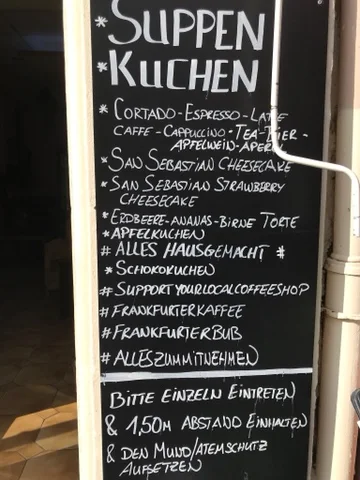 *SUPPEN
*KUCHEN
*CORTADO-ESPRESSO-LATTE
CAFFE-CAPPUCCINO-TEA-BIER-
APFELWEIN-APER
*SAN SEBASTIAN CHEESECAKE
*SAN SEBASTIAN STRAWBERRY
CHEESECAKE
*ERDBEERE-ANANAS-BIRNE TORTE
*APFELKUCHEN
#ALLES HAUSGEMACHT *
*SCHOKOKUCHEN
#SUPPORTYOURLOCALCOFFEESHOP
#FRANKFURTERKAFFEE
#FRANKFURTERBUB
#ALLESZUMMITNEHMEN
BITTE EINZELN EINTRETEN
& 1,50M ABSTAND EINHALTEN
& DEN MUND/ATEMSCHUTZ
AUFSETZEN